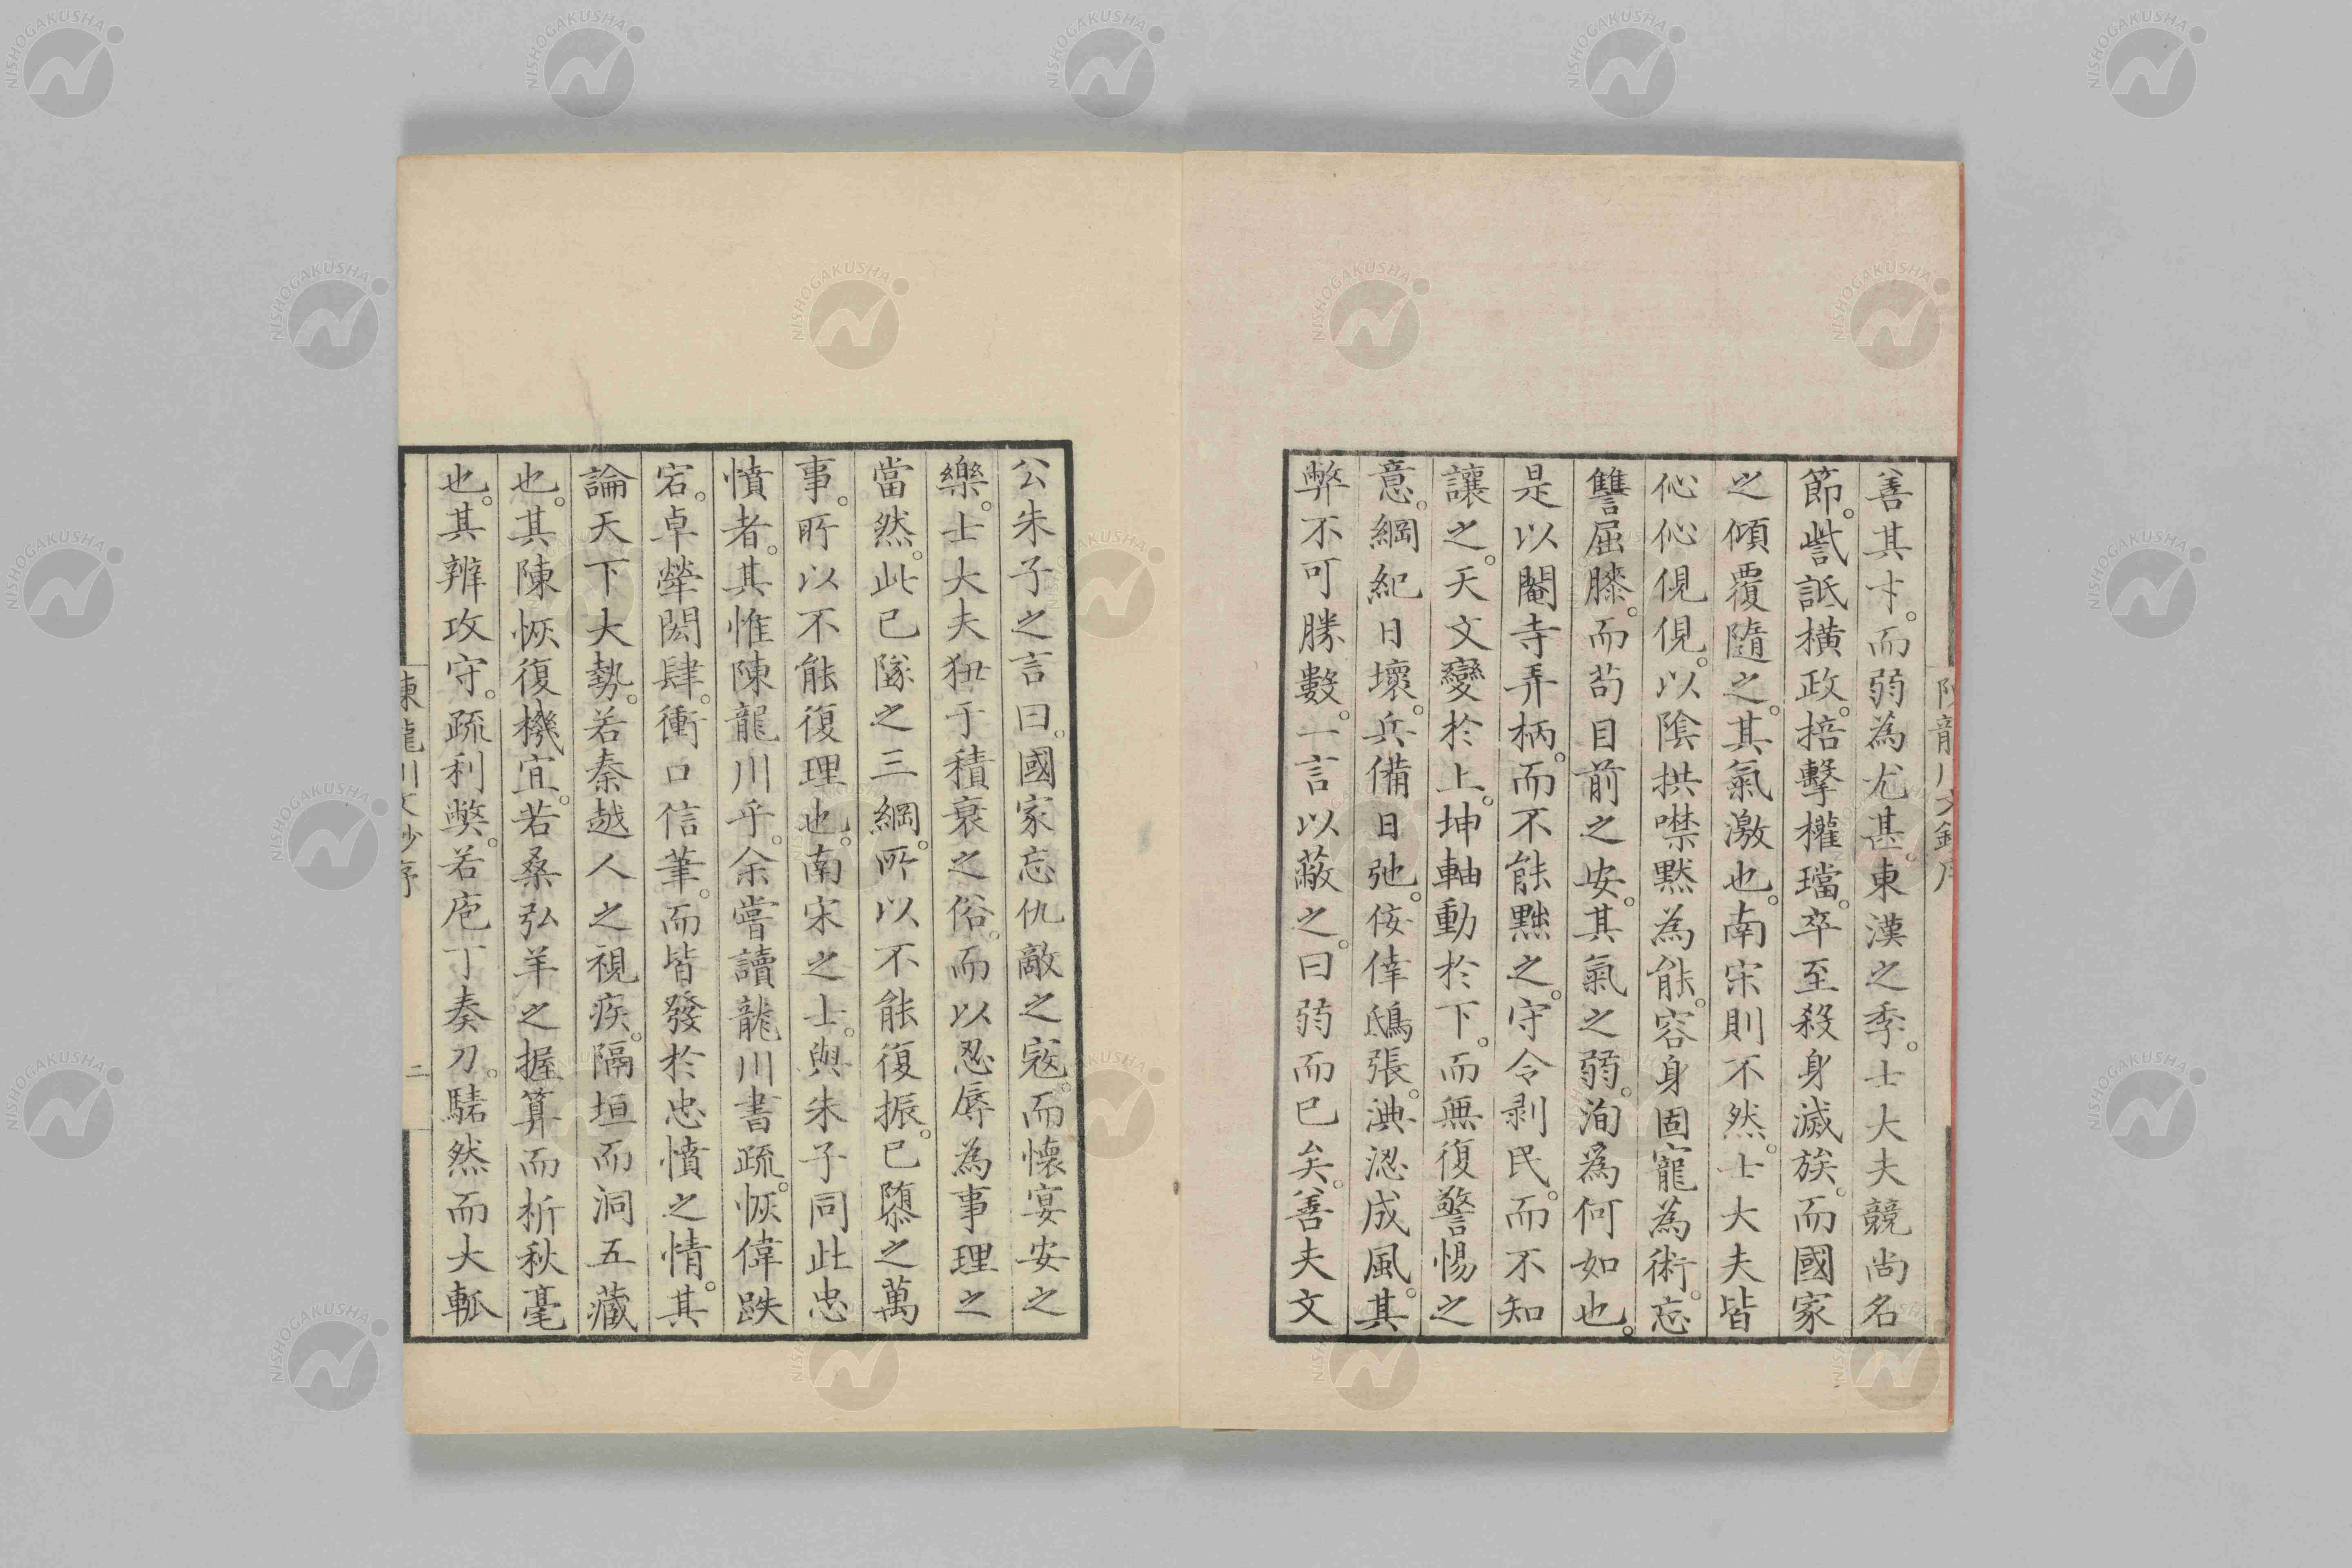 善其才。而弱為尤甚。東漢之季。士大夫競尚名
節。訾詆橫政。掊擊權璫。卒至殺身滅族。而國家
之傾覆隨之。其氣激也。南宋則不然。士大夫皆
伈伈俔俔。以陰拱噤默為能。容身固寵為術。忘
讐屈膝。而苟目前之安。其氣之弱。洵為何如也。
是以閹寺弄柄。而不能黜之。守令剥民。而不知
讓之。天文變於上。坤軸動於下。而無復警惕之
意。綱紀日壞。兵備日弛。侫倖鴟張。淟涊成風。其
弊不可勝數。一言以蔽之。曰弱而已矣。善夫文
公朱子之言曰。國家忘仇敵之寇。而懷宴安之
樂。士大夫狃于積衰之俗。而以忍辱為事理之
當然。此已隊之三綱。所以不能復振。已隳之萬
事。所以不能復理也。南宋之士。與朱子同此忠
憤者。其惟陳龍川乎。余嘗讀龍川書疏。恢偉跌
宕。卓犖閎肆。衝口信筆。而皆發於忠憤之情。其
論天下大勢。若秦越人之視疾。隔垣而洞五藏
也。其陳恢復機宜。若桑弘羊之握算而析秋毫
也。其辨攻守。疏利弊。若庖丁奏刀。騞然而大軱
陳龍川文鈔序
二
NISHOGAKUSHA